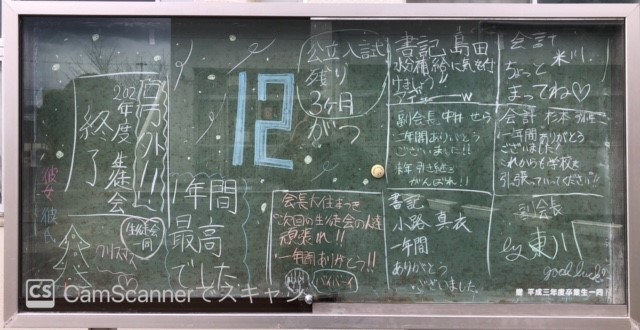 号外!!
2021年度 生徒会
終了
生徒会一同
彼女
彼氏
クリスマス
12
1年間
最高
でした
公立入試
残り
3ヶ月
がっ
書記 島田
水分補給に気を付
けましょう!
w
会計
米川
ちょっと
まってね♡
副会長 中井 せら
一年間ありがとう
ございました!!
来年引き継ぎ
がんばれ!!
会計 杉本
一年間ありがとう
ございました!
これからも学校を
引っ張っていってください!!
会長 大住
次回の生徒会の人達
頑張れ!!
一年間ありがとう!!
バイバイ
書記
小路 真衣
一年間
ありがとう
ございました
副会長
by 東川
good luck
贈 平成三年度卒業生一同
CS CamScannerでスキャン